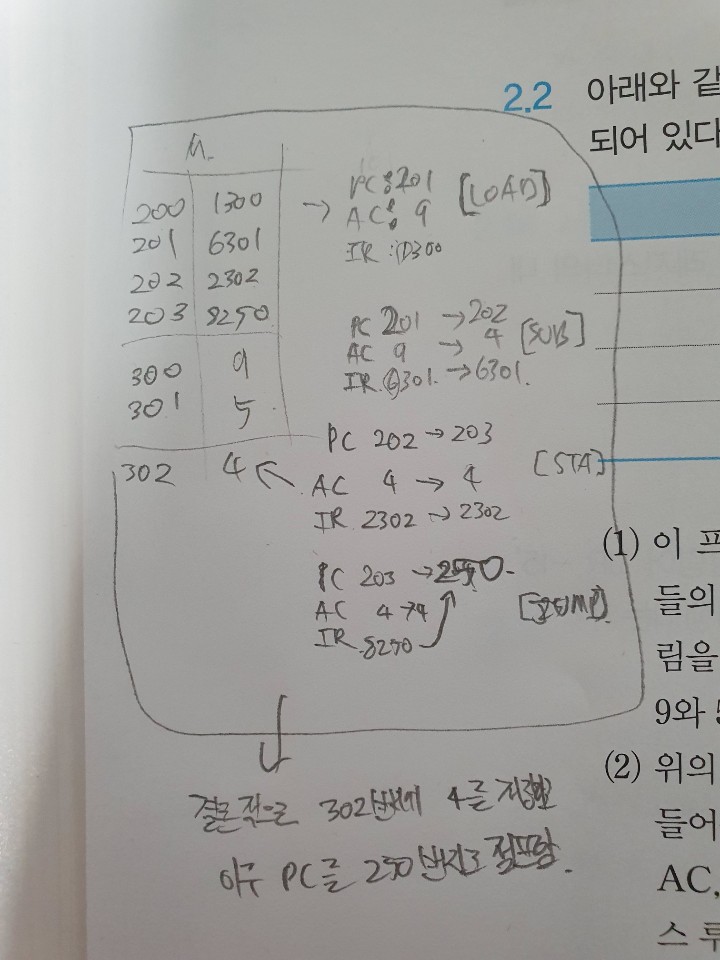 2.2 아래와 같
되어 있다
M.
200 1300
201 6301
202 2302
203 8250
300 9
301 5
302 4
→ PC: 201 [LOAD]
AC: 9
IR: 1300
PC 201 → 202
AC 9 → 4 [SUB]
IR 6301. → 6301.
PC 202 → 203
AC 4 → 4 [STA]
IR 2302 → 2302
PC 203 → 250.
AC 4 → 4 [JUMP]
IR 8250
결론적으로 302번지에 4를 저장하고
이후 PC를 250번지로 점프함.
(1) 이 프
들의
림을
9와 5
(2) 위의
들어
AC,
스 루